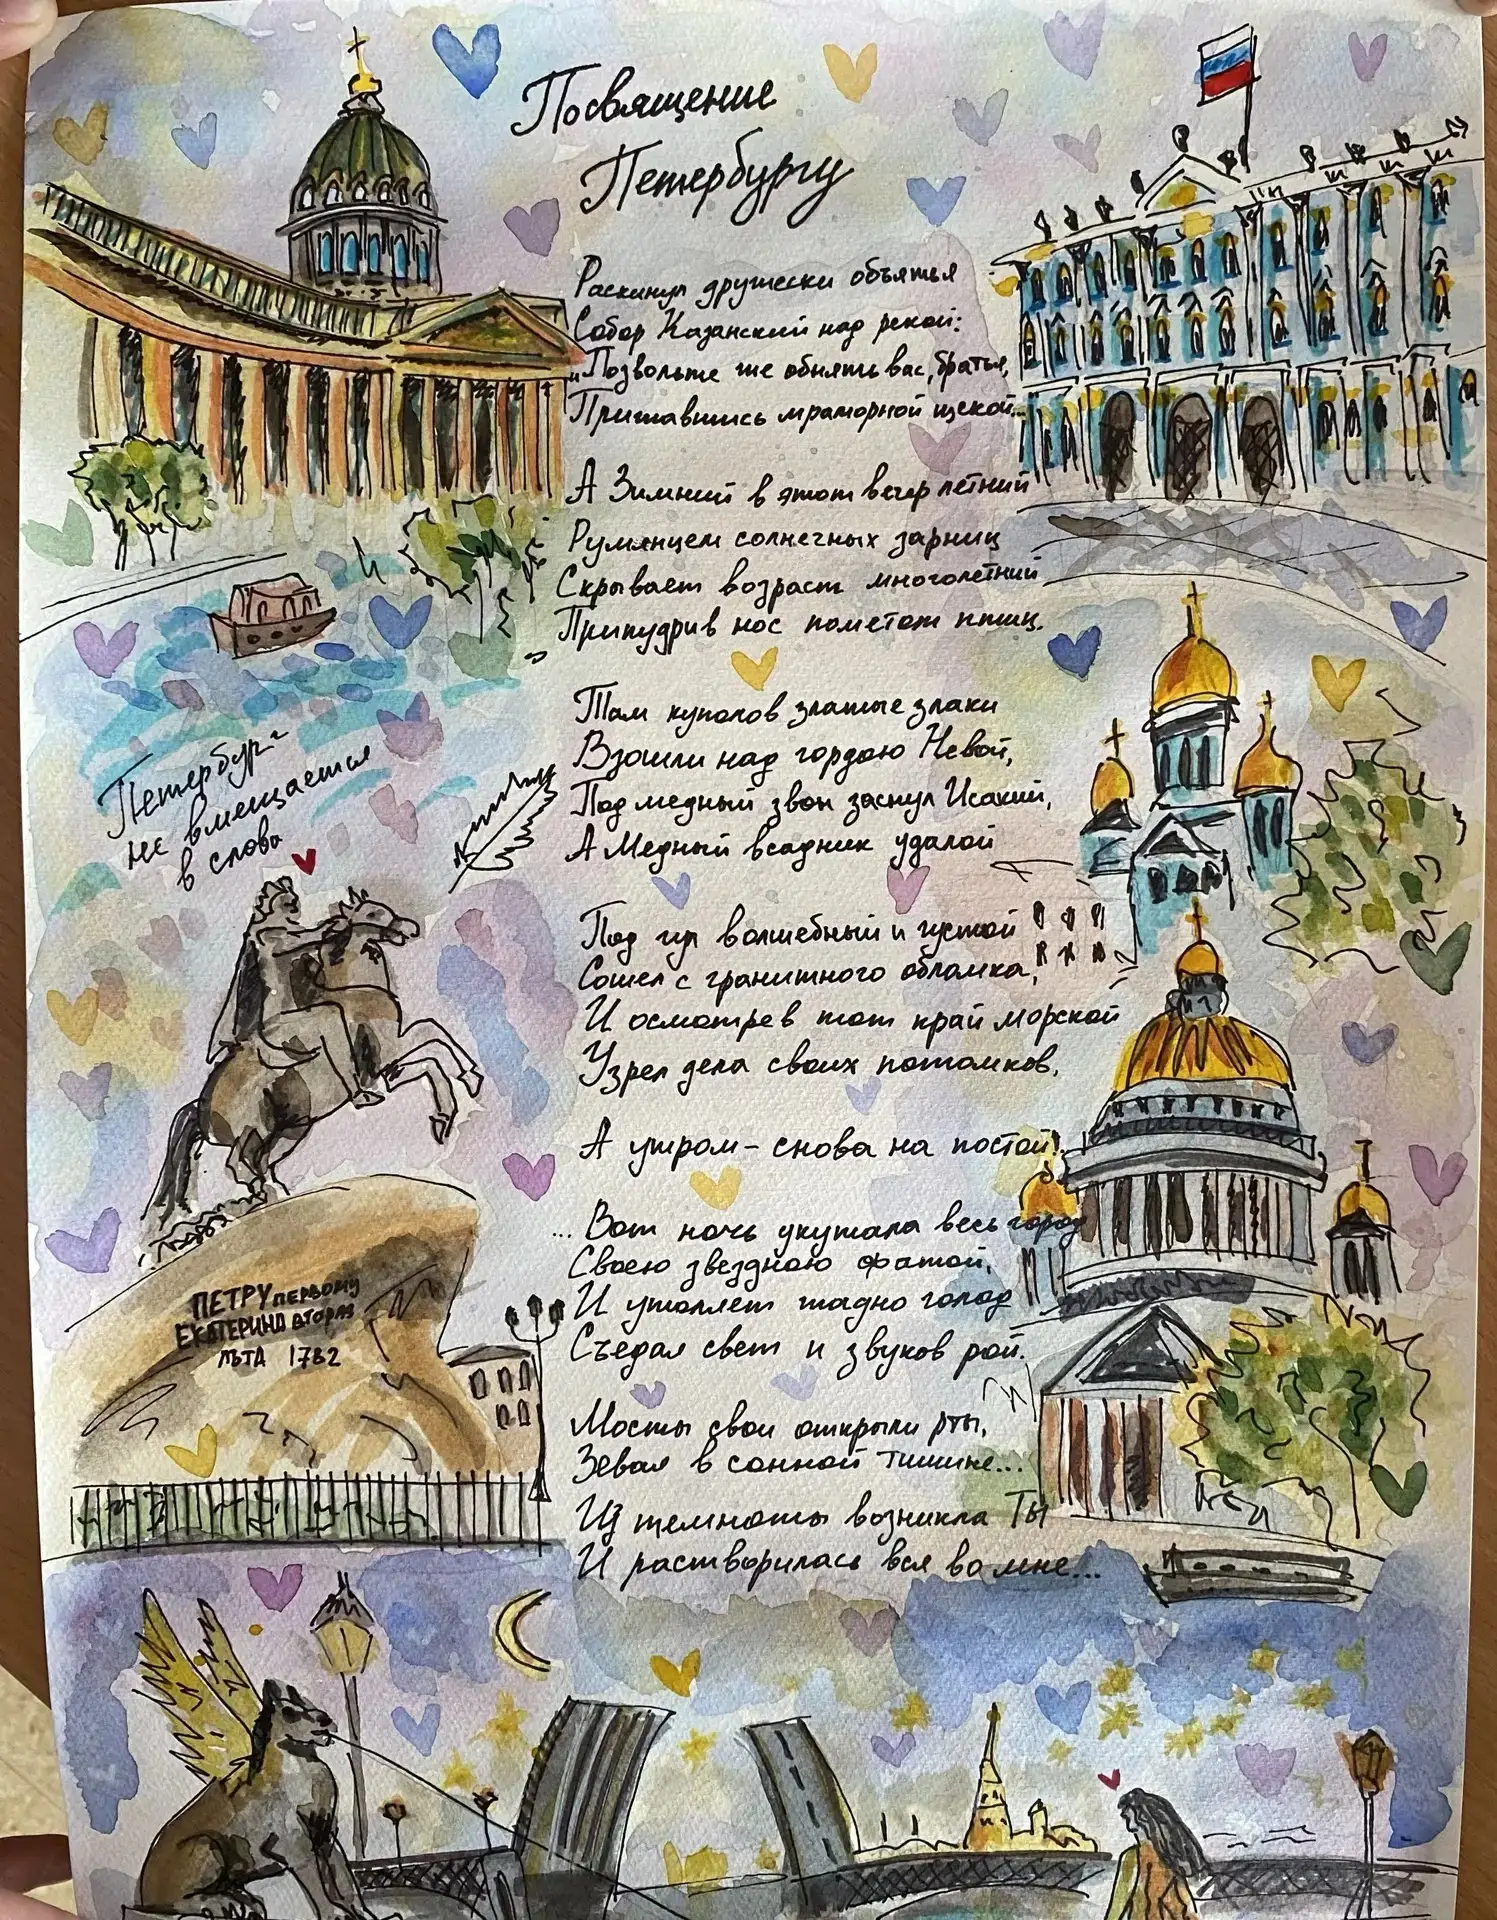 Посвящение
Петербургу
Раскинул дружески объятья
Собор Казанский над рекой:
„Позвольте же обнять вас, братья,
Прижавшись мраморной щекой..."
А Зимний в этот вечер летний
Румянцем солнечных зарниц
Скрывает возраст многолетний
Припудрив нос пометом птиц.
Там куполов златые злаки
Взошли над гордою Невой,
Под медный звон заснул Исакий,
А Медный всадник удалой
Под гул волшебный и густой
Сошел с гранитного обломка,
И осмотрев тот край морской
Узрел дела своих потомков,
А утром – снова на постой!
... Вот ночь укутала весь город
Своею звездною фатой,
И утоляет жадно голод
Съедая свет и звуков рой.
Мосты свои открыли рты,
Зевая в сонной тишине...
Из темноты возникла Ты
И растворилась вся во мне...
Петербург -
не вмещается
в слова
ПЕТРУ первому
ЕКАТЕРИНА вторая
лѣта 1782